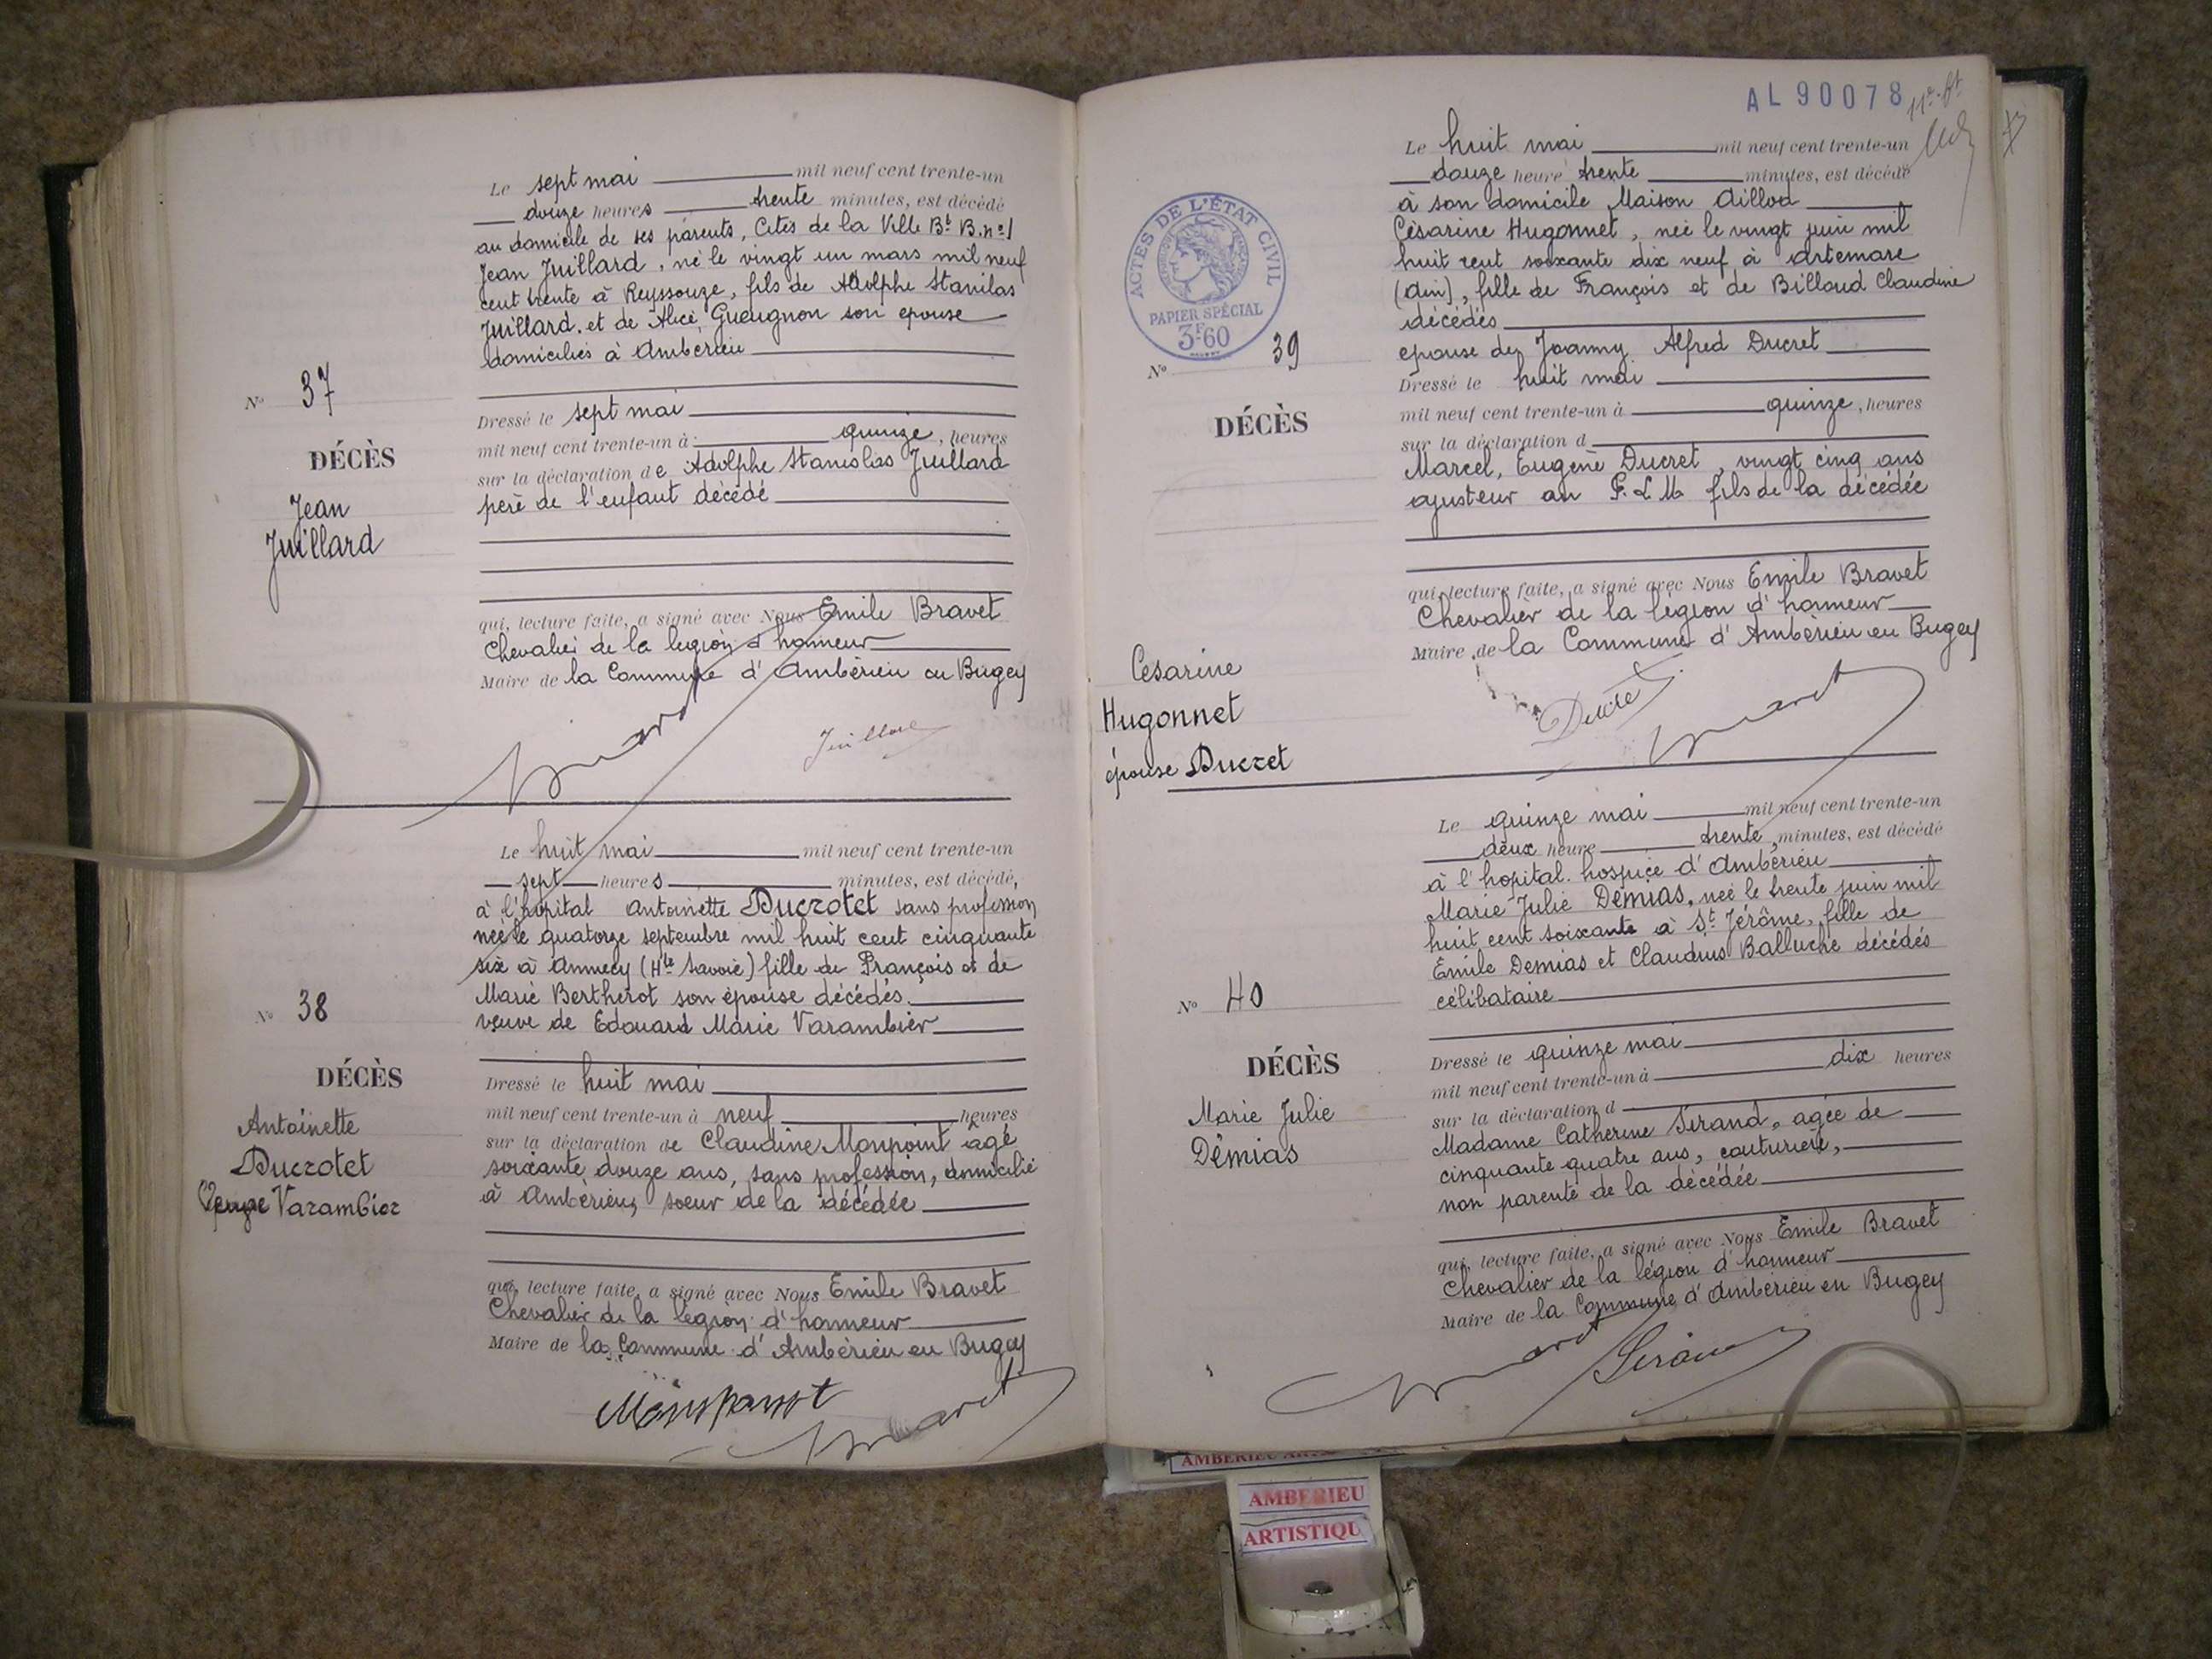 Le sept mai mil neuf cent trente-un
douze heures trente minutes, est décédé
au domicile de ses parents, Cités de la Ville Bt B. no 1
Jean Juillard, né le vingt un mars mil neuf
cent trente à Reyssouze, fils de Adolphe Stanilas
Juillard, et de Alice Gueugnon son epouse
domiciliés à Ambérieu
No 37
DÉCÈS
Jean
Juillard
Dressé le sept mai
mil neuf cent trente-un à quinze, heures
sur la déclaration de Adolphe Stanislas Juillard
père de l'enfant décédé
qui, lecture faite, a signé avec Nous Emile Bravet
Chevalier de la legion d'honneur
Maire de la Commune d'Ambérieu en Bugey
Juillard
Le huit mai mil neuf cent trente-un
sept heures minutes, est décédé,
à l'hôpital Antoinette Ducrotet sans profession
née le quatorze septembre mil huit cent cinquante
six à Annecy (Hte Savoie) fille de François et de
Marie Bertherot son épouse décédés.
veuve de Edouard Marie Varambier
No 38
DÉCÈS
Antoinette
Ducrotet
Veuve Varambier
Dressé le huit mai
mil neuf cent trente-un à neuf heures
sur la déclaration de Claudine Monpoint âgé
soixante douze ans, sans profession, domicilié
à Ambérieu, soeur de la décédée
qui, lecture faite, a signé avec Nous Emile Bravet
Chevalier de la légion d'honneur
Maire de la Commune d'Ambérieu en Bugey
AL 90078
Le huit mai mil neuf cent trente-un
douze heure trente minutes, est décédé
à son domicile Maison Aillod
Césarine Hugonnet, née le vingt juin mil
huit cent soixante dix neuf à Artemare
(Ain), fille de François et de Billoud Claudine
décédés
epouse de Joanny Alfred Ducret
ACTES DE L'ÉTAT CIVIL
PAPIER SPÉCIAL
3F60
No 39
DÉCÈS
Césarine
Hugonnet
épouse Ducret
Dressé le huit mai
mil neuf cent trente-un à quinze, heures
sur la déclaration d
Marcel, Eugène Ducret, vingt cinq ans
ajusteur au P.L.M. fils de la décédée
qui, lecture faite, a signé avec Nous Emile Bravet
Chevalier de la légion d'honneur
Maire de la Commune d'Ambérieu en Bugey
Le quinze mai mil neuf cent trente-un
deux heure trente minutes, est décédé
à l'hopital hospice d'Ambérieu
Marie Julie Démias, née le trente juin mil
huit cent soixante à St Jérôme, fille de
Emile Demias et Claudius Balluche décédés
célibataire
No 40
DÉCÈS
Marie Julie
Démias
Dressé le quinze mai
mil neuf cent trente-un à dix heures
sur la déclaration d
Madame Catherine Sirand, agée de
cinquante quatre ans, couturière,
non parente de la décédée
qui, lecture faite, a signé avec Nous Emile Bravet
Chevalier de la légion d'honneur
Maire de la Commune d'Ambérieu en Bugey
AMBERIEU
ARTISTIQU